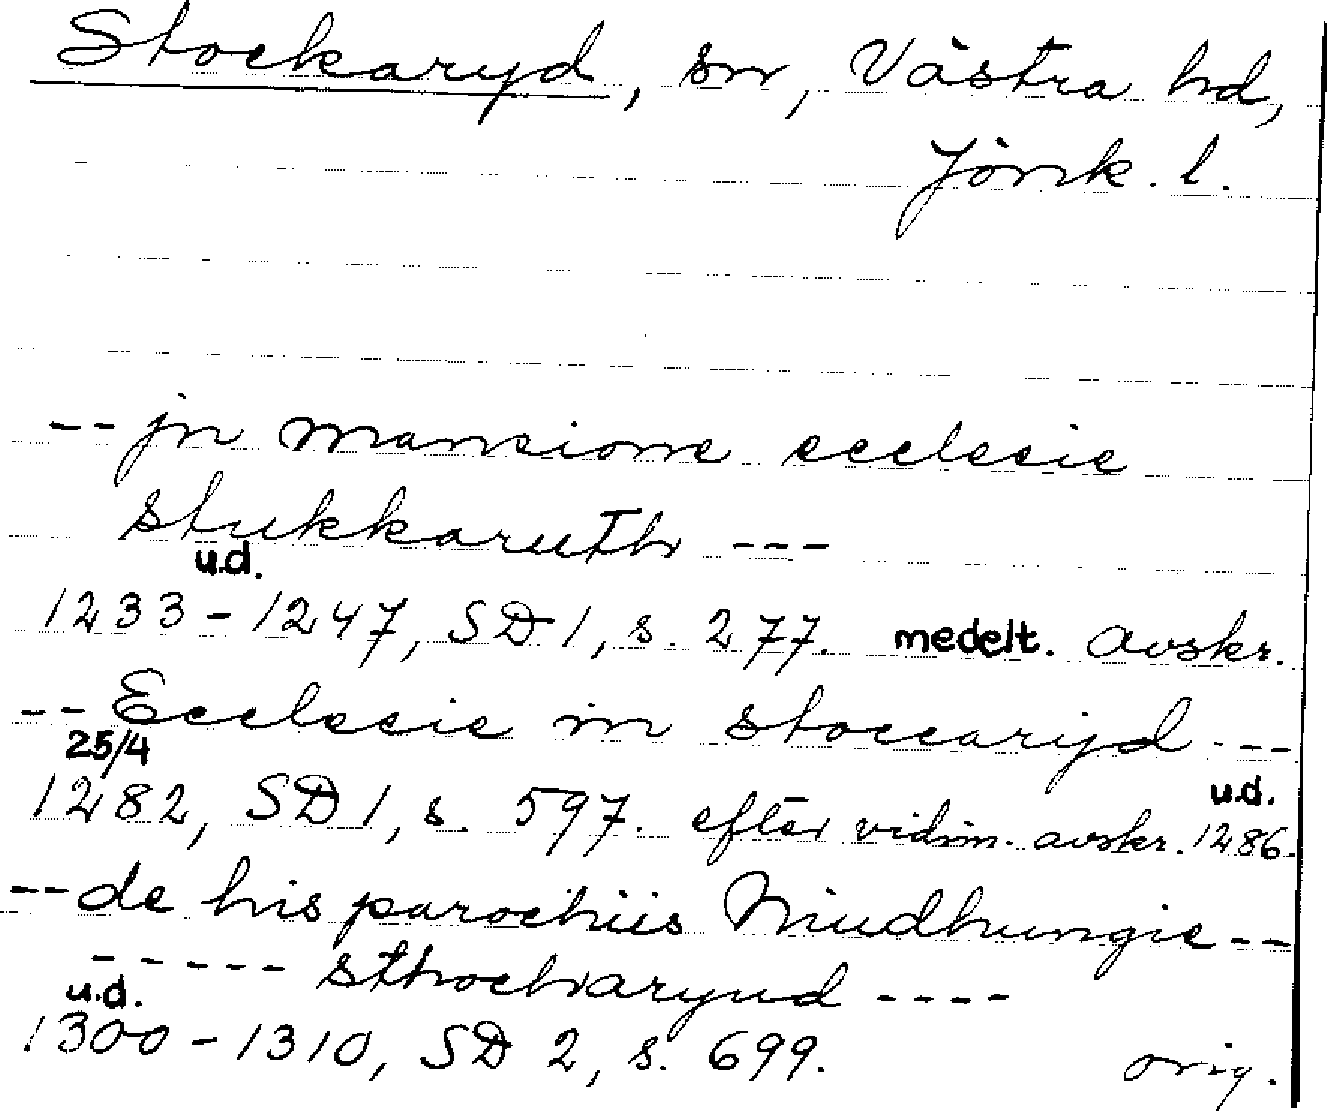 Stockaryd, sn, Västra hd,
Jönk. l.
-- jn mansione ecclesie
stukkaruth ---
u.d.
1233-1247, SD 1, s. 277. medelt. avskr.
-- Ecclesie in stoccaryd ---
25/4
1282, SD 1, s. 597. efter vidim. avskr. u.d. 1286.
-- de his parochiis Niudhungie --
----- sthocharyud ----
u.d.
1300-1310, SD 2, s. 699. orig.